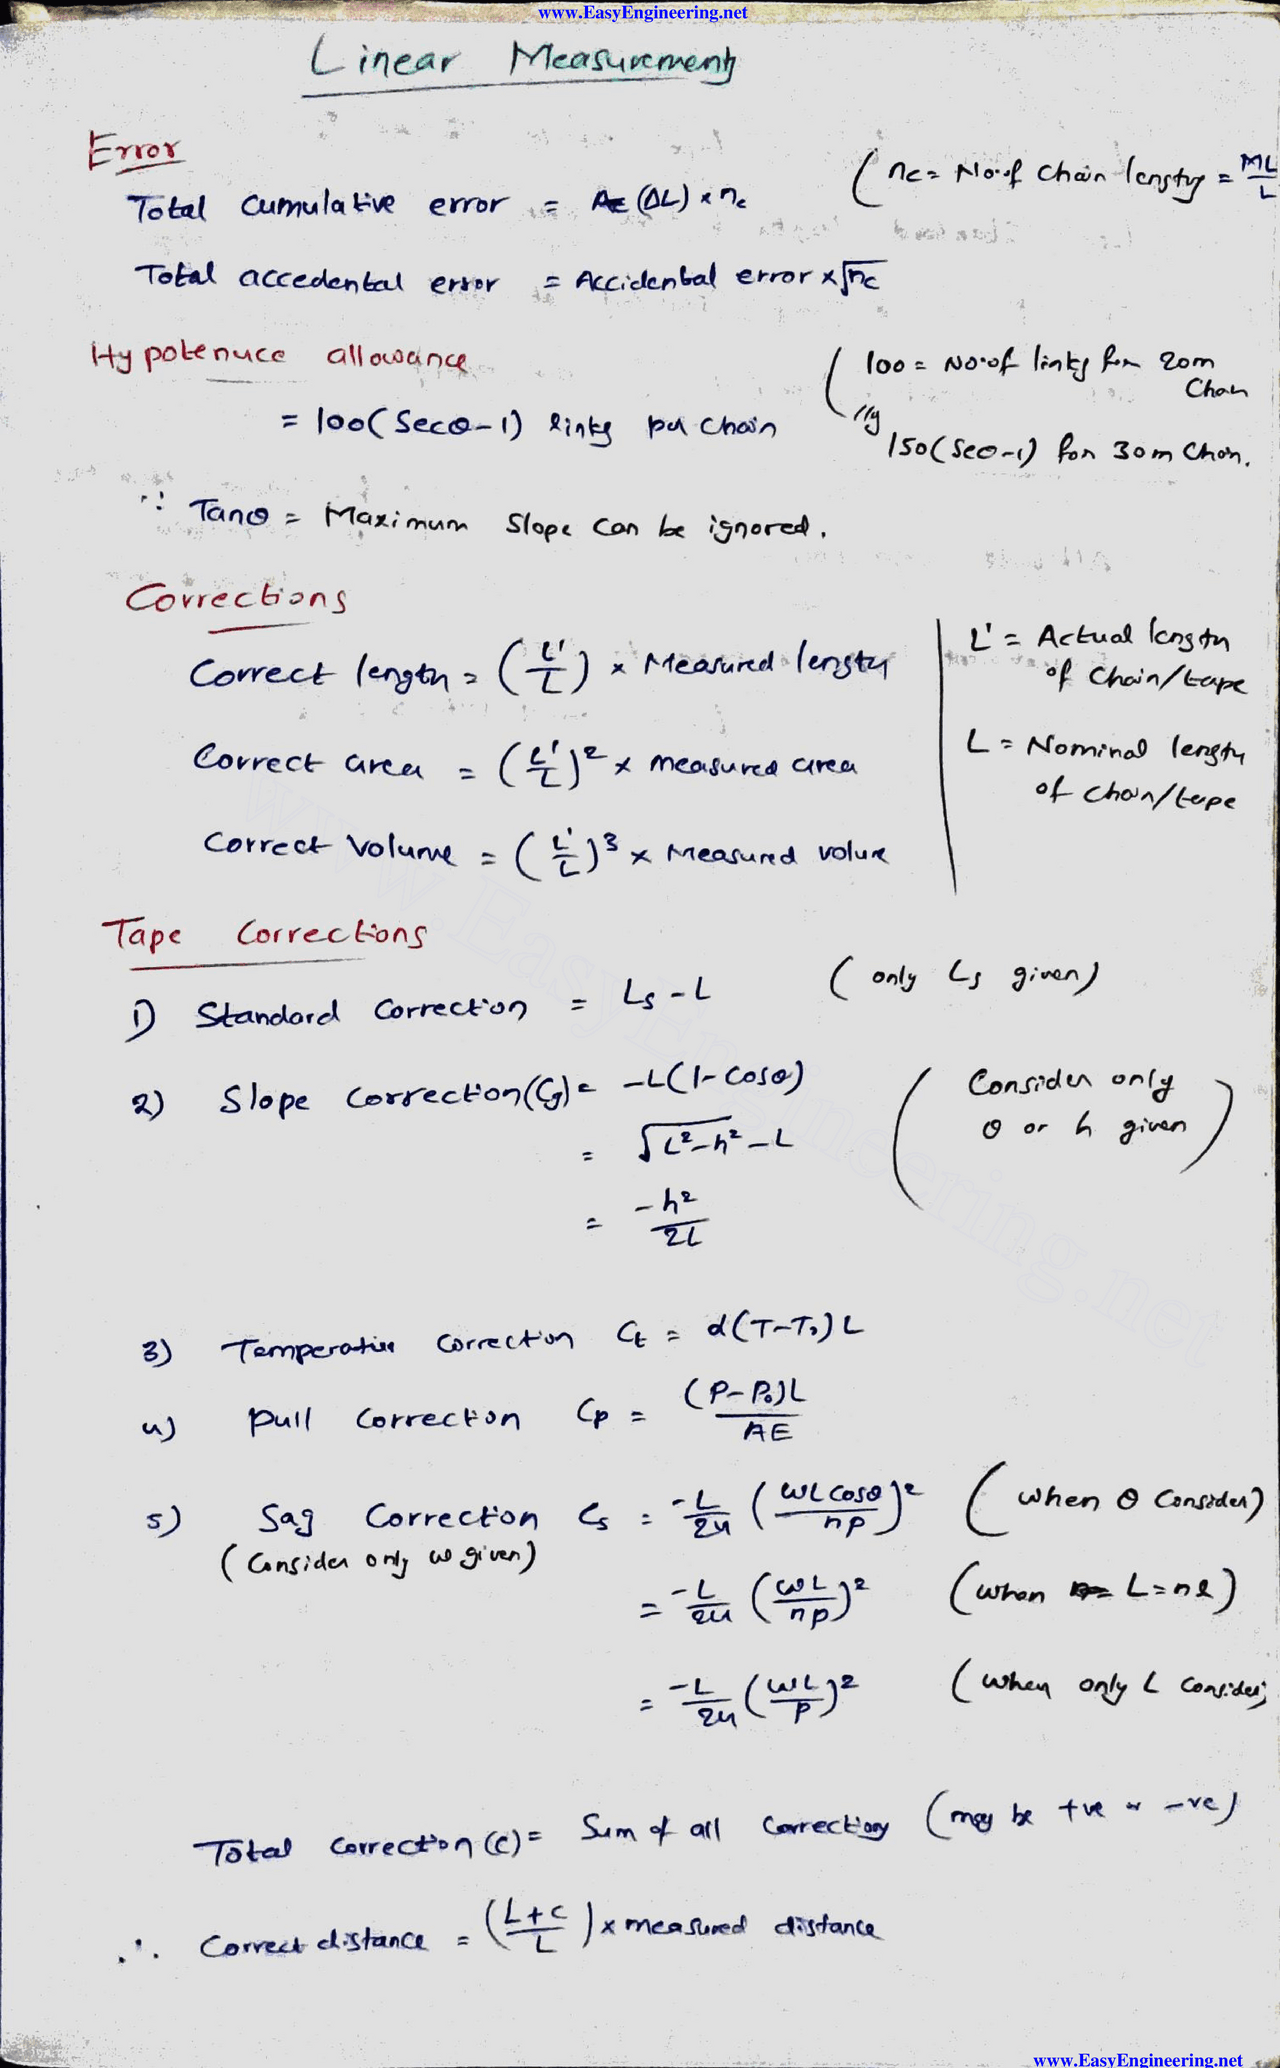 www.EasyEngineering.net
Linear Measurements
Error
Total cumulative error = (ΔL) × nc (nc = No. of chain lengths = ML/L
Total accedental error = Accidental error × √nc
Hypotenuce allowance
= 100(Secθ-1) links per chain
(100 = No. of links for 20m Chain
lly 150(Secθ-1) for 30m Chain.
∵ Tanθ = Maximum Slope can be ignored.
Corrections
Correct length = (L'/L) × Measured length
Correct area = (L'/L)² × measured area
Correct Volume = (L'/L)³ × Measured volume
L' = Actual length
of Chain/tape
L = Nominal length
of chain/tape
Tape Corrections
1) Standard Correction = Ls - L (only Ls given)
2) Slope correction (Cg) = -L(1-cosθ)
= √L²-h² - L
= -h²/2L
(Consider only
θ or h given)
3) Temperature correction Ct = α(T-To)L
4) Pull Correction Cp = (P-Po)L/AE
5) Sag Correction Cs = -L/24 (WLcosθ/nP)² (When θ Consider)
(Consider only ω given)
= -L/24 (ωL/nP)² (when L = nl)
= -L/24 (WL/P)² (when only L consider)
Total correction (C) = Sum of all Corrections (may be +ve or -ve)
∴ Correct distance = (L+C/L) × measured distance
www.EasyEngineering.net
www.EasyEngineering.net